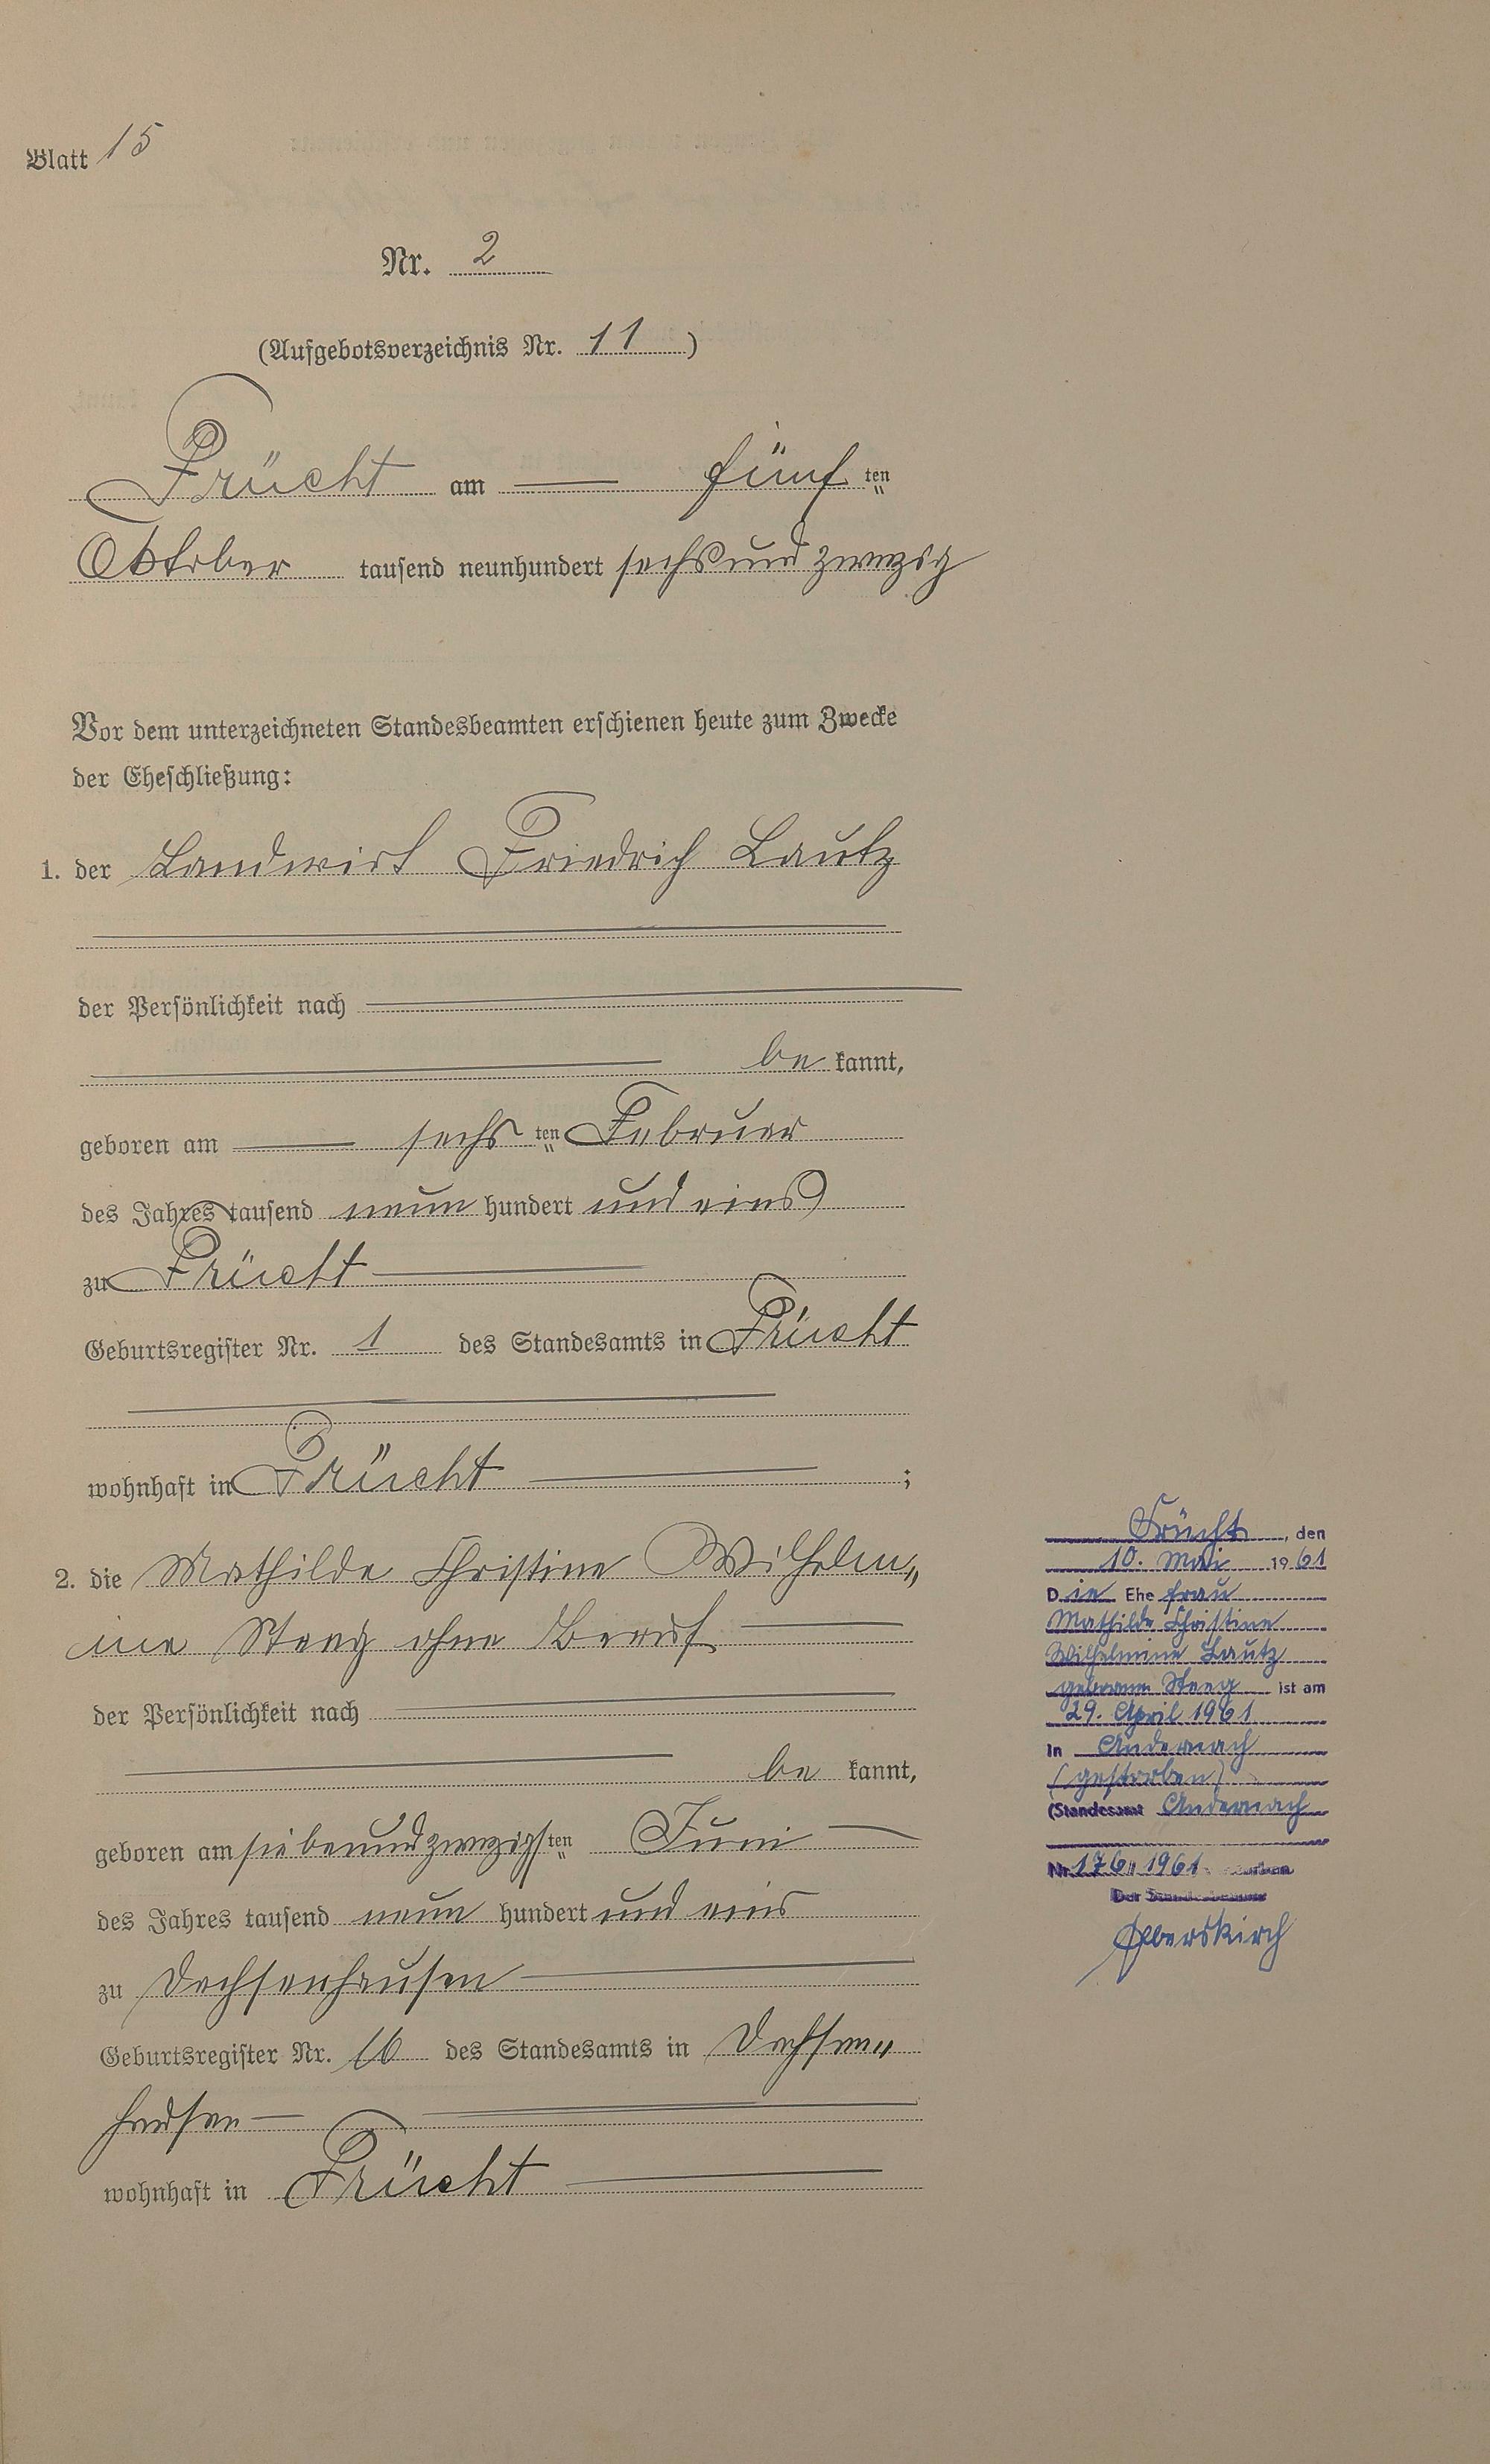 Blatt 15
Nr. 2
(Aufgebotsverzeichnis Nr. 11)
Frücht am fünf ten
Oktober tausend neunhundert sechsundzwanzig
Vor dem unterzeichneten Standesbeamten erschienen heute zum Zwecke
der Eheschließung:
1. der Landwirt Friedrich Lautz
der Persönlichkeit nach
be kannt,
geboren am sechs ten Februar
des Jahres tausend neun hundert und eins
zu Frücht
Geburtsregister Nr. 1 des Standesamts in Frücht
wohnhaft in Frücht ;
2. die Mathilde Christine Wilhelm„
ine Steeg ohne Beruf
der Persönlichkeit nach
be kannt,
geboren am siebenundzwanzigsten Juni
des Jahres tausend neun hundert und eins
zu Dachsenhausen
Geburtsregister Nr. 16 des Standesamts in Dachsen„
hausen
wohnhaft in Frücht
Frücht, den
10. Mai 1961
Die Ehefrau
Mathilde Christine
Wilhelmine Lautz
geborene Steeg ist am
29. April 1961
in Andernach
(gestorben)
(Standesamt Andernach
Nr. 176 1961
Der Standesbeamte